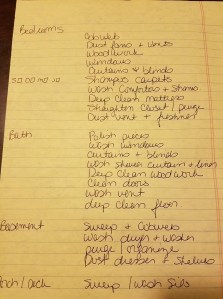 Bedrooms
Cobweb
Dust fans + vents
Woodwork
Windows
Curtains & blinds
Shampoo carpets
Wash Comforters + Shams
Deep Clean mattress
Straighten closet / purge
Dust vent + freshner
Bath
Polish
Wash windows
Curtains + blinds
Wash shower curtain + liner
Deep Clean woodwork
Clean doors
Wash vent
deep clean floor
Basement
Sweep + Cobwebs
Wash dryer + washer
purge / organize
Dust dresser + Shelves
Porch / Deck
Sweep / wash